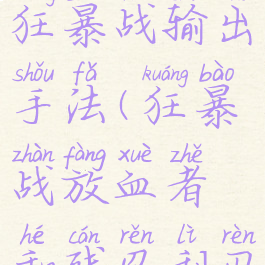 狂暴战输出
shǒu fǎ kuáng bào
手法(狂暴
zhàn fàng xuè zhě
战放血者
hé cán rěn lì rèn